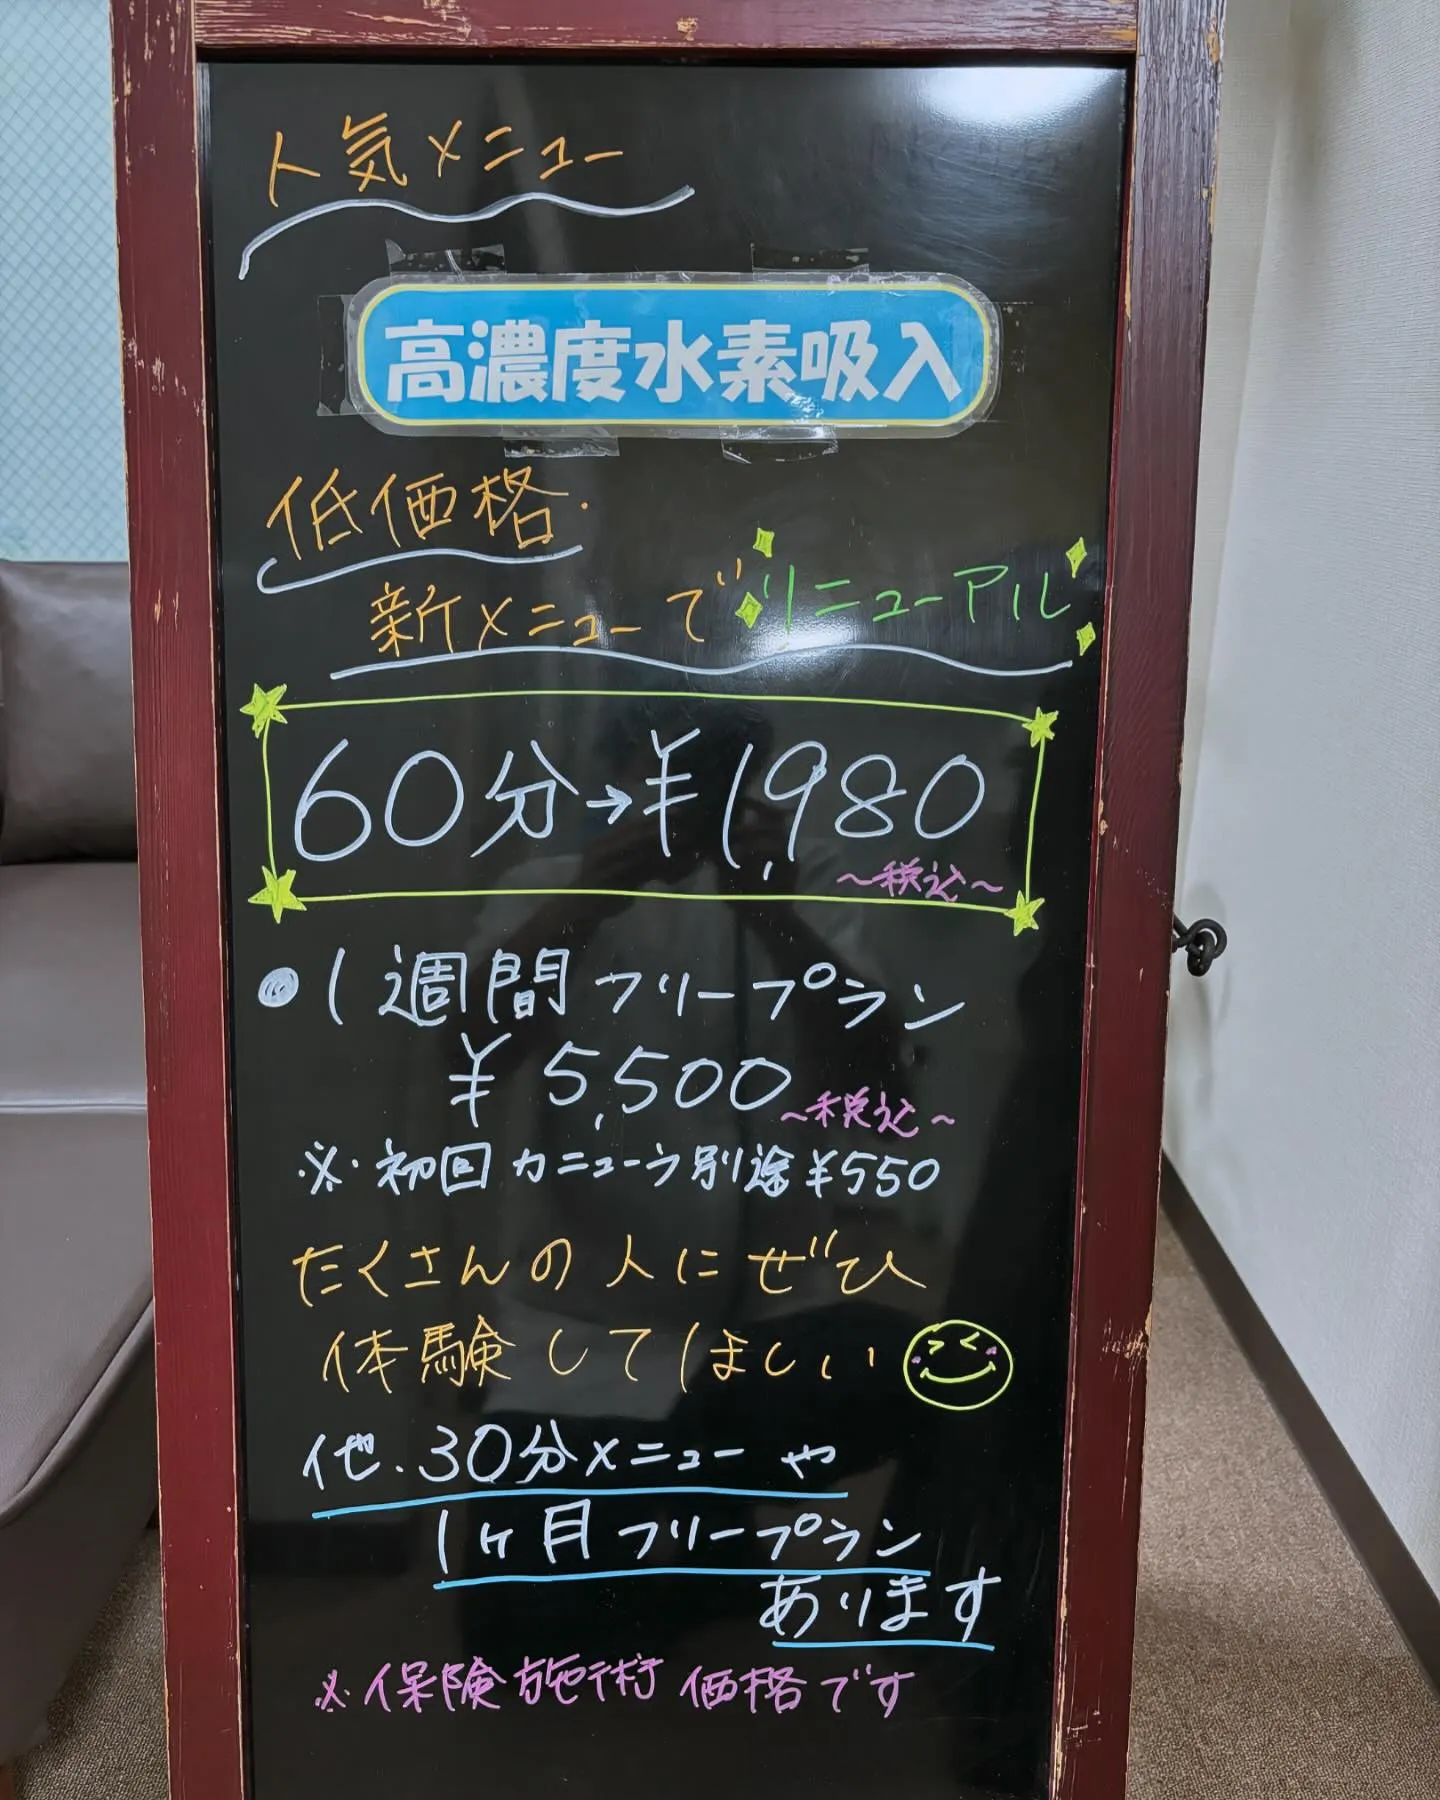 人気メニュー
高濃度水素吸入
低価格
新メニューでリニューアル
60分→¥1,980
～税込～
●1週間フリープラン
¥5,500
～税込～
※初回カニューラ別途¥550
たくさんの人にぜひ
体験してほしい
他、30分メニューや
1ヶ月フリープラン
あります
※保険施術価格です